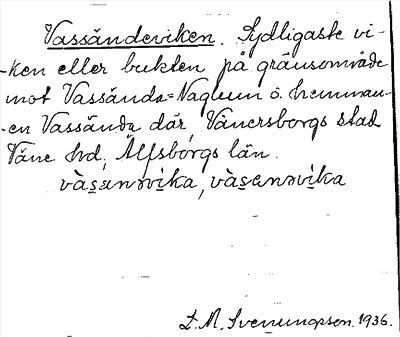 Vassändeviken. Sydligaste vi-
-ken eller bukten på gränsområde
mot Vassända-Naglum o. hemman-
-en Vassända där, Vänersborgs stad
Väne hd, Älfsborgs län.
vàsanəvika, vàsenəvika
L. M. Svenungsson. 1936.